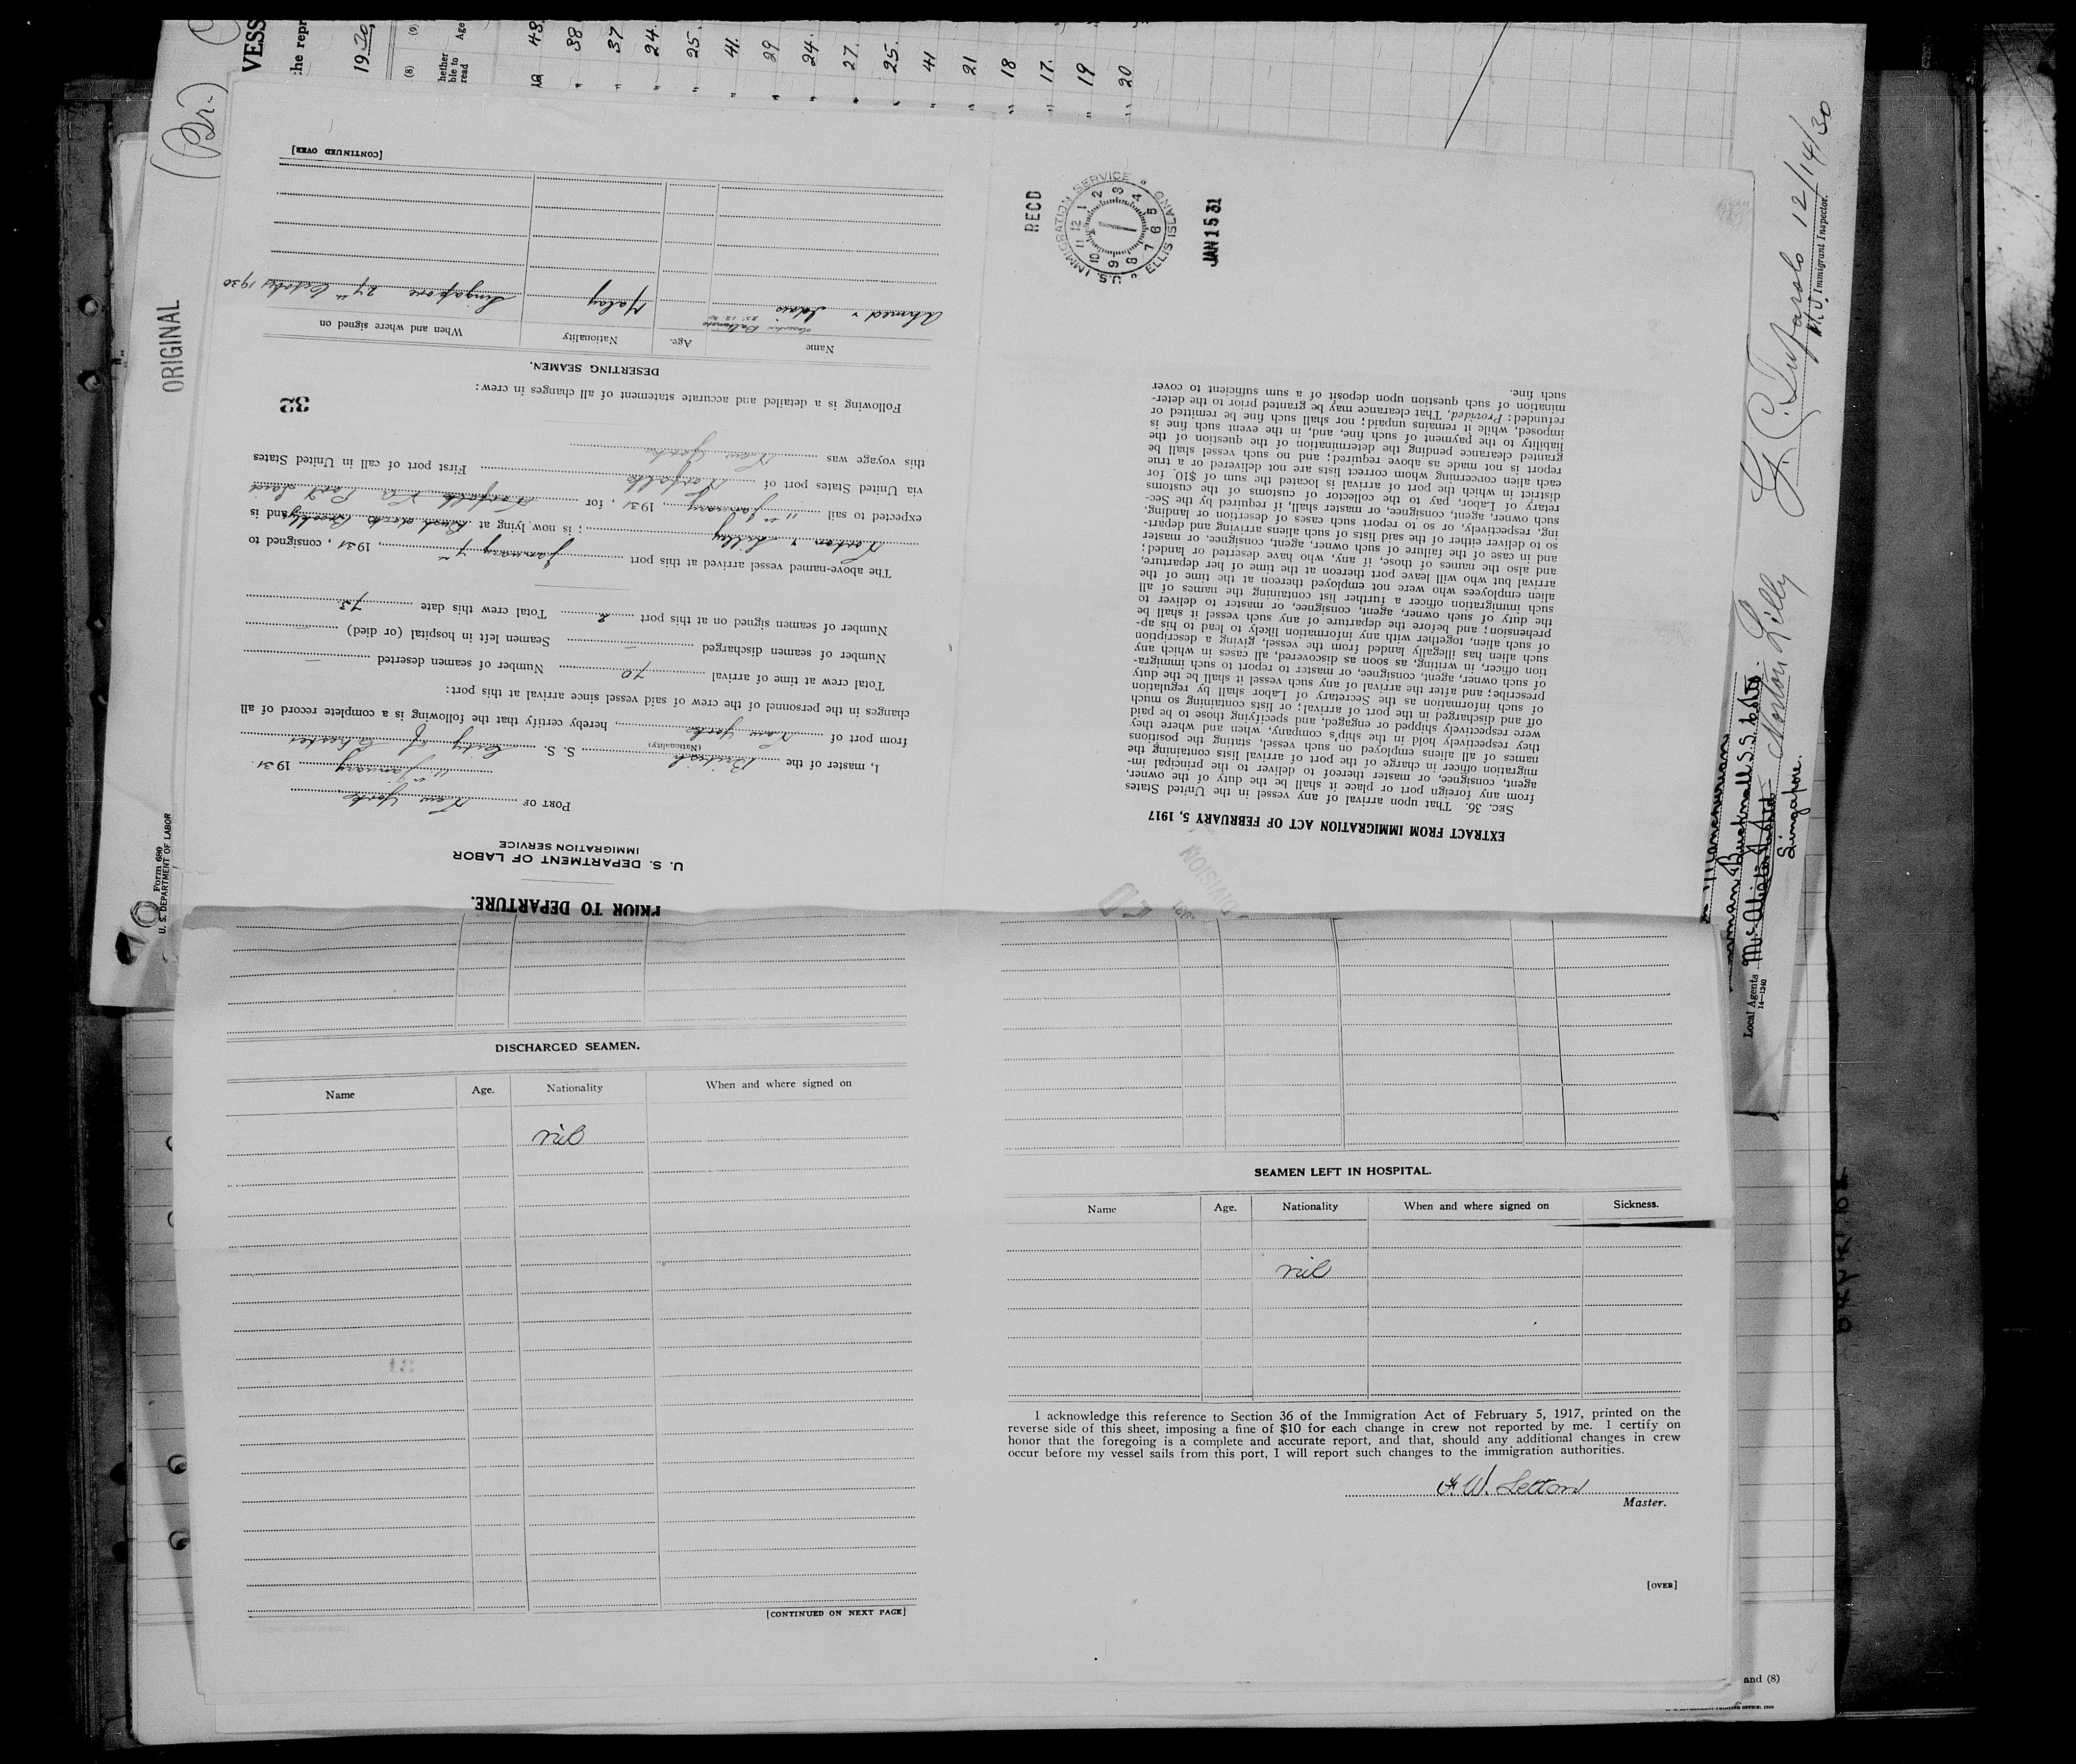 PRIOR TO DEPARTURE.
U. S. DEPARTMENT OF LABOR
IMMIGRATION SERVICE
PORT OF New York
11th January 1931
I, master of the British S. S. City of Chester
(Nationality)
from port of New York hereby certify that the following is a complete record of all
changes in the personnel of the crew of said vessel since arrival at this port:
Total crew at time of arrival 70 Number of seamen deserted —
Number of seamen discharged — Seamen left in hospital (or died) —
Number of seamen signed on at this port 2 Total crew this date 73
The above-named vessel arrived at this port January 7th, 1931, consigned to
Norton & Lilley; is now lying at Bush dock Brooklyn and is
expected to sail 11th January 1931, for Norfolk Va Port Said
via United States port of Norfolk First port of call in United States
this voyage was New York
Following is a detailed and accurate statement of all changes in crew:
32
DESERTING SEAMEN.
Name Age. Nationality When and where signed on
Baltimore
Ahmed Malay Singapore 27th October 1930
[CONTINUED OVER]
EXTRACT FROM IMMIGRATION ACT OF FEBRUARY 5, 1917
SEC. 36. That upon arrival of any vessel in the United States
from any foreign port or place it shall be the duty of the owner,
agent, consignee, or master thereof to deliver to the principal im-
migration officer in charge of the port of arrival lists containing the
names of all aliens employed on such vessel, stating the positions
they respectively hold in the ship's company, when and where they
were respectively shipped or engaged, and specifying those to be paid
off and discharged in the port of arrival; or lists containing so much
of such information as the Secretary of Labor shall by regulation
prescribe; and after the arrival of any such vessel it shall be the duty
of such owner, agent, consignee, or master to report to such immigra-
tion officer, in writing, as soon as discovered, all cases in which any
such alien has illegally landed from the vessel, giving a description
of such alien, together with any information likely to lead to his ap-
prehension; and before the departure of any such vessel it shall be
the duty of such owner, agent, consignee, or master to deliver to
such immigration officer a further list containing the names of all
alien employees who were not employed thereon at the time of the
arrival but who will leave port thereon at the time of her departure,
and also the names of those, if any, who have deserted or landed;
and in case of the failure of such owner, agent, consignee, or master
so to deliver either of the said lists of such aliens arriving and depart-
ing, respectively, or so to report such cases of desertion or landing,
such owner, agent, consignee, or master, shall, if required by the Sec-
retary of Labor, pay to the collector of customs of the customs
district in which the port of arrival is located the sum of $10. for
each alien concerning whom correct lists are not delivered or a true
report is not made as above required; and no such vessel shall be
granted clearance pending the determination of the question of the
liability to the payment of such fine, and, in the event such fine is
imposed, while it remains unpaid; nor shall such fine be remitted or
refunded: Provided, That clearance may be granted prior to the deter-
mination of such question upon deposit of a sum sufficient to cover
such fine.
RECD
U.S. IMMIGRATION SERVICE ELLIS ISLAND
1 2 3 4 5 6 7 8 9 10 11 12
JAN 15 31
DIVISION
DISCHARGED SEAMEN.
Name Age. Nationality When and where signed on
nil
[CONTINUED ON NEXT PAGE]
SEAMEN LEFT IN HOSPITAL.
Name Age. Nationality When and where signed on Sickness.
nil
I acknowledge this reference to Section 36 of the Immigration Act of February 5, 1917, printed on the
reverse side of this sheet, imposing a fine of $10 for each change in crew not reported by me. I certify on
honor that the foregoing is a complete and accurate report, and that, should any additional changes in crew
occur before my vessel sails from this port, I will report such changes to the immigration authorities.
Master.
[OVER]
ORIGINAL
Form 680
U. S. DEPARTMENT OF LABOR
(Br.)
VESS
he repr
1930
(8) (9)
hether
ble to
read
Age
48
38
37
24
25
41
29
24
27
25
41
21
18
17
19
20
12/14/30
U. S. Immigrant Inspector.
Bucknall S.S. Lines
Local Agents
14-1240
Norton Lilly
Singapore.
and (8)